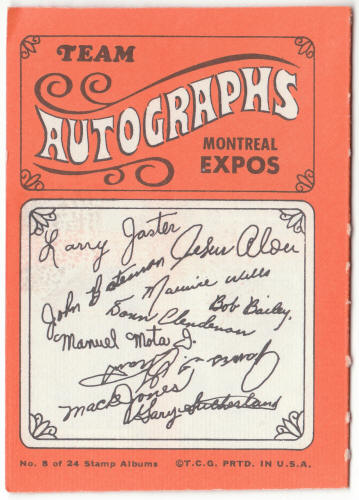 TEAM
AUTOGRAPHS
MONTREAL
EXPOS
Larry Jaster
Jesus Alou
John Bateman
Maurice Wills
Donn Clendenon
Bob Bailey
Manuel Mota J.
Mack Jones
Gary Sutherland
No. 8 of 24 Stamp Albums ©T.C.G. PRTD. IN U.S.A.